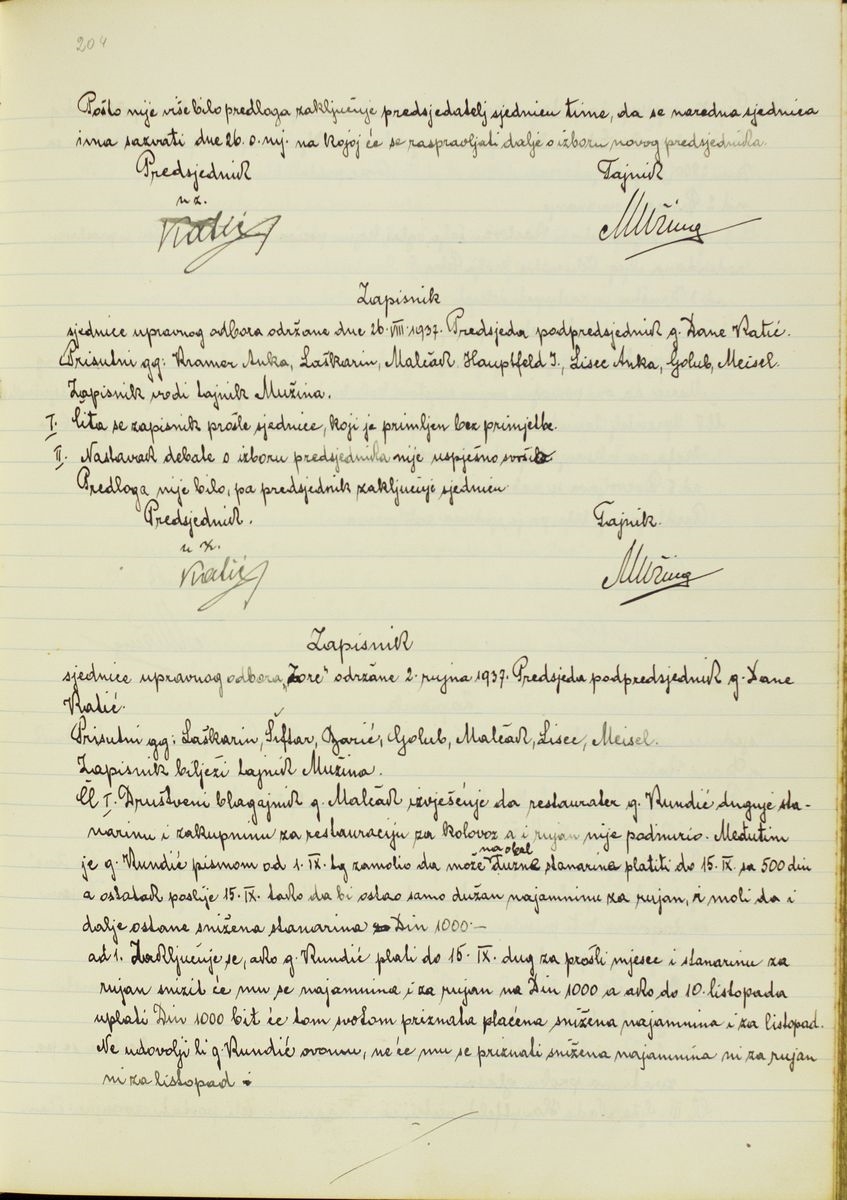 204
Pošto nije više bilo predloga zaključuje predsjedatelj sjednicu time, da se naredna sjednica
ima sazvati dne 26. o. mj. na kojoj će se raspravljati dalje o izboru novog predsjednika.
Predsjednik Tajnik
u z.
Katić Mužina
Zapisnik
sjednice upravnog odbora održane dne 26. VIII. 1937. Predsjeda podpredsjednik g. Dane Katić.
Prisutni gg: Kramer Anka, Laškarin, Malčak, Hauptfeld I., Lisec Anka, Golub, Meisel.
Zapisnik vodi tajnik Mužina.
I. Čita se zapisnik prošle sjednice, koji je primljen bez primjetbe.
II. Nastavak debate o izboru predsjednika nije uspješno svršila
Predloga nije bilo, pa predsjednik zaključuje sjednicu.
Predsjednik. Tajnik.
u z.
Katić Mužina
Zapisnik
sjednice upravnog odbora „Zore" održane 2. rujna 1937. Predsjeda podpredsjednik g. Dane
Katić.
Prisutni gg: Laškarin, Šiftar, Barić, Golub, Malčak, Lisec, Meisel.
Zapisnik bilježi tajnik Mužina.
Čl I. Društveni blagajnik g. Malčak izvješćuje da restaurater g. Kundić duguje sta-
narinu i zakupninu za restauraciju za kolovoz a i rujan nije podmirio. Međutim
je g. Kundić pismom od 1. IX. tg zamolio da može na obel dužne stanarine platiti do 15. IX. sa 500 din
a ostatak poslije 15. IX. tako da bi ostao samo dužan najamninu za rujan, i moli da i
dalje ostane snižena stanarina Din 1000.—
ad 1. Zaključuje se, ako g. Kundić plati do 15. IX. dug za prošli mjesec i stanarinu za
rujan snizit će mu se najamnina i za rujan na Din 1000 a ako do 10. listopada
uplati Din 1000 bit će tom svotom priznata plaćena snižena najamnina i za listopad.
Ne udovolji li g. Kundić ovomu, ne će mu se priznati snižena najamnina ni za rujan
ni za listopad